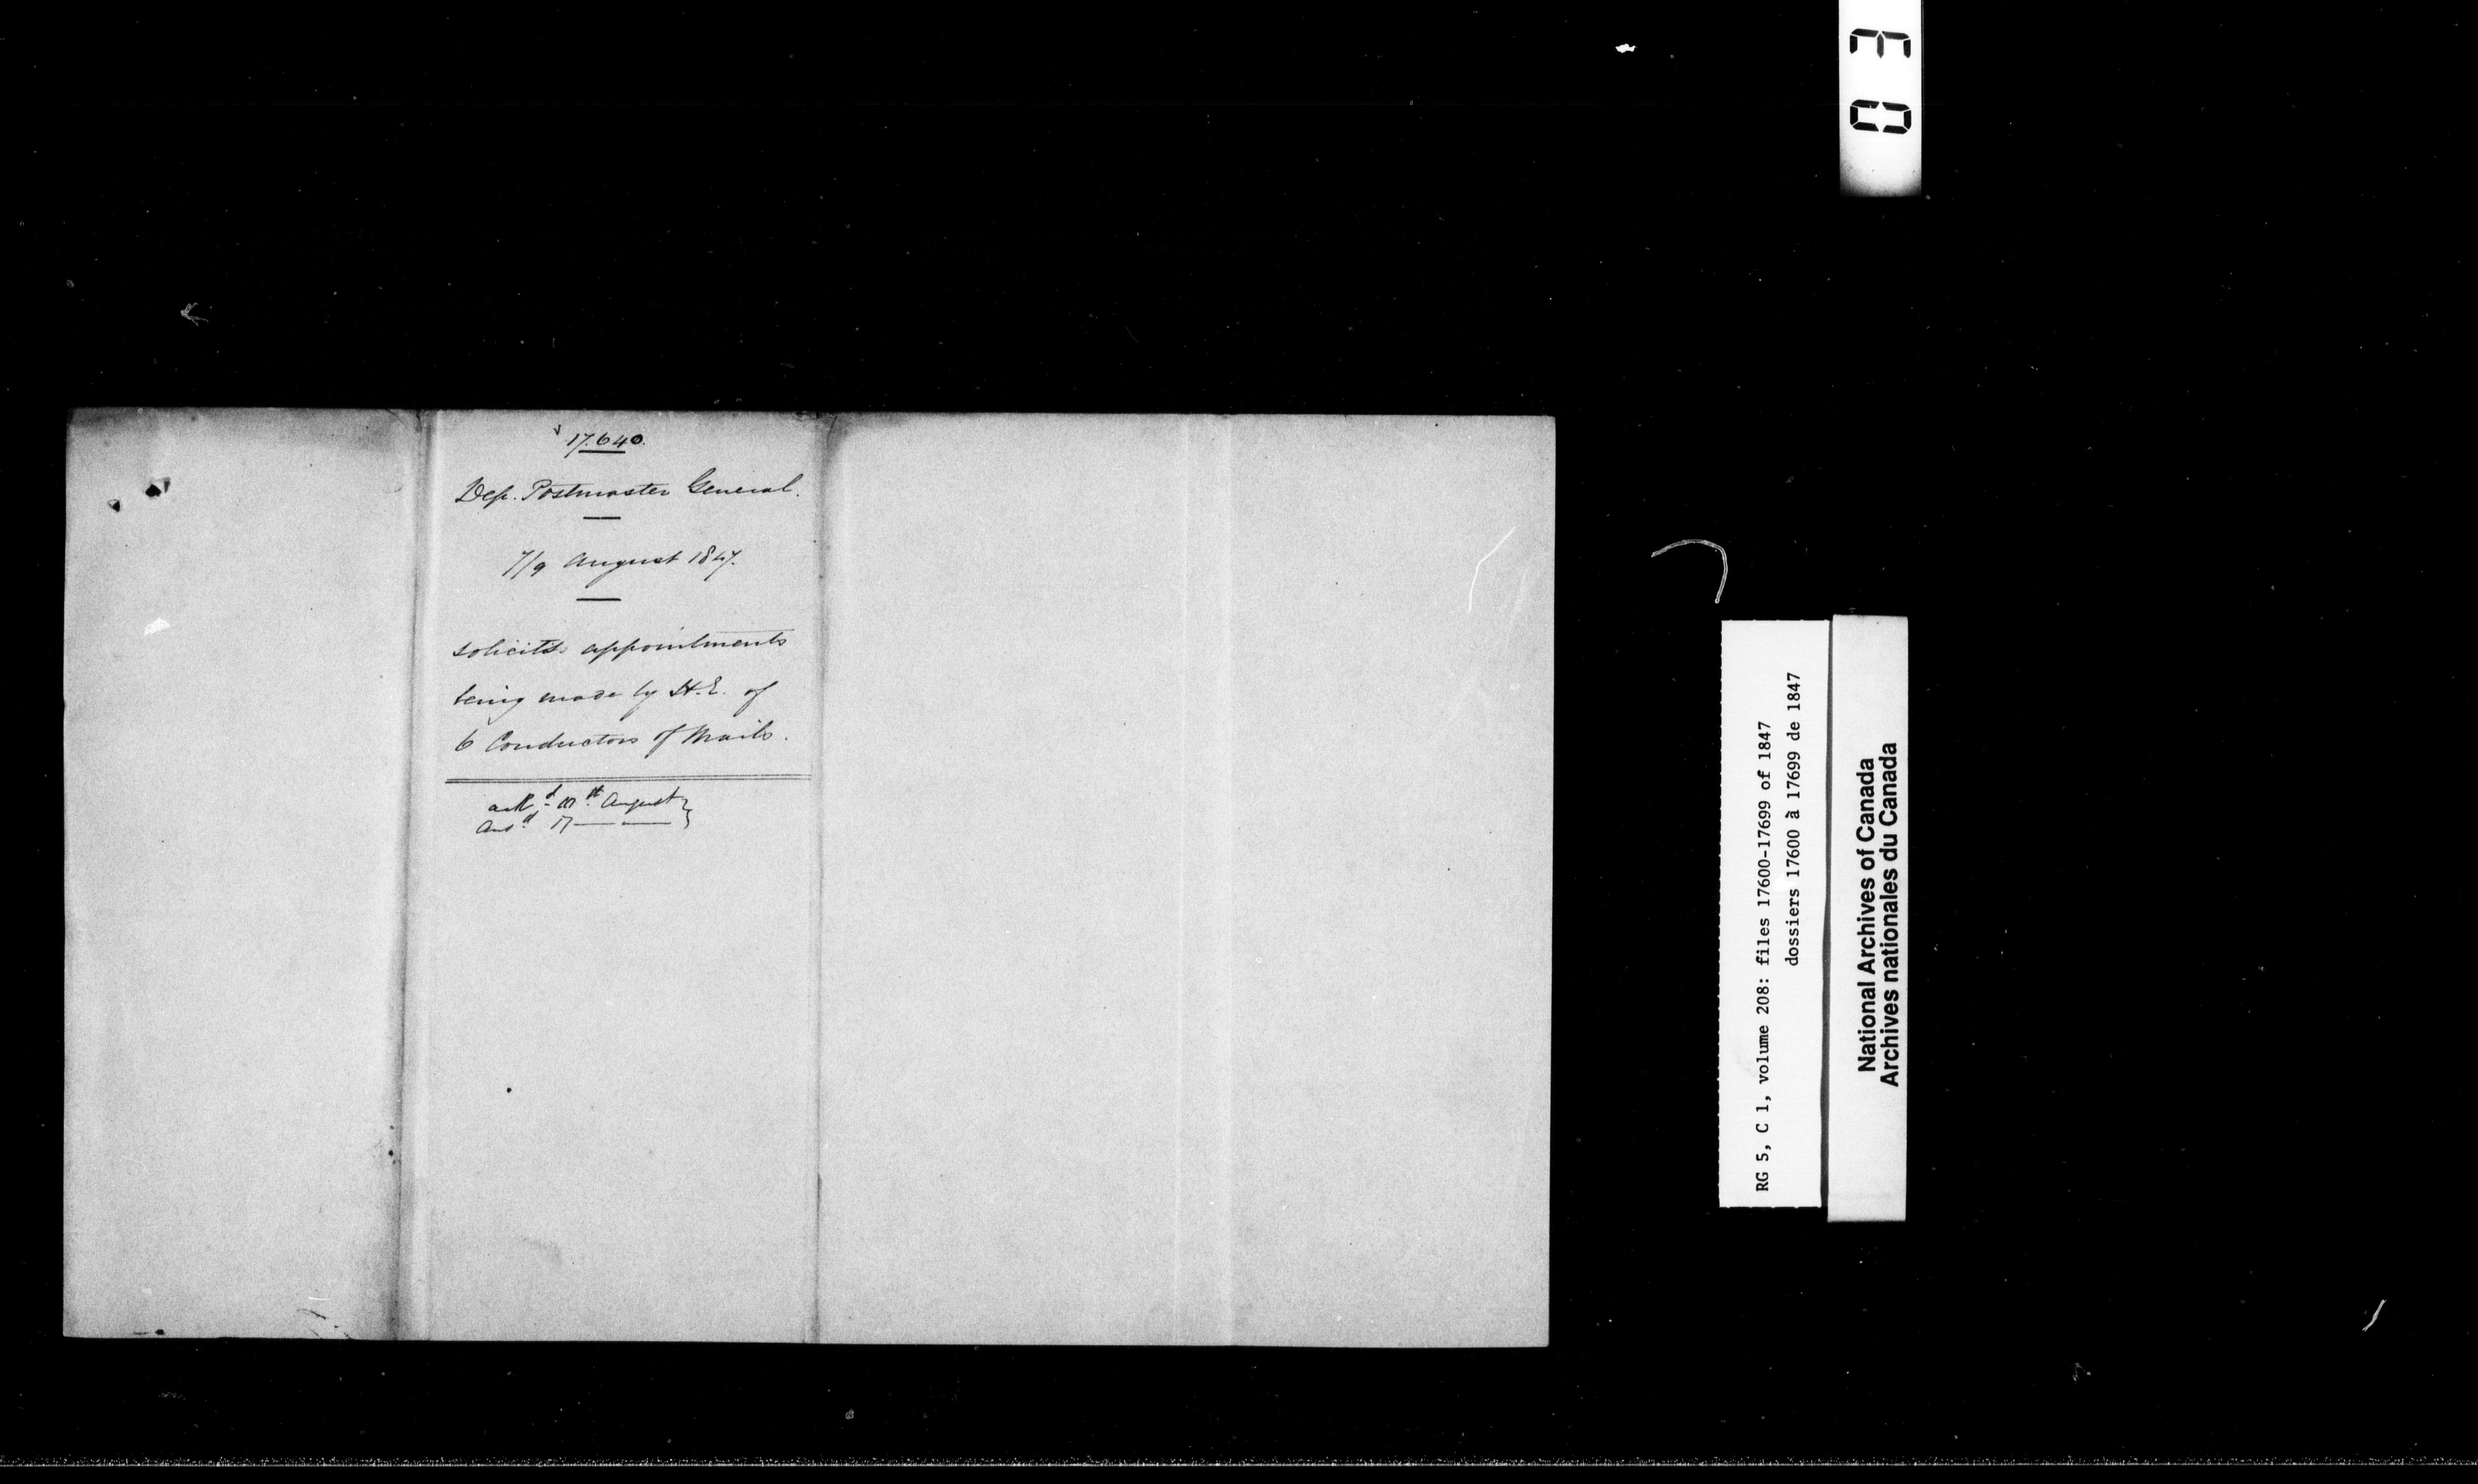 17.640.
Dep. Postmaster General.
7/9 August 1847.
solicits appointments
being made by H.E. of
6 Conductors of Mails.
ackd. August
Ansd. 17 — —
RG 5, C 1, volume 208: files 17600-17699 of 1847
dossiers 17600 à 17699 de 1847
National Archives of Canada
Archives nationales du Canada
03